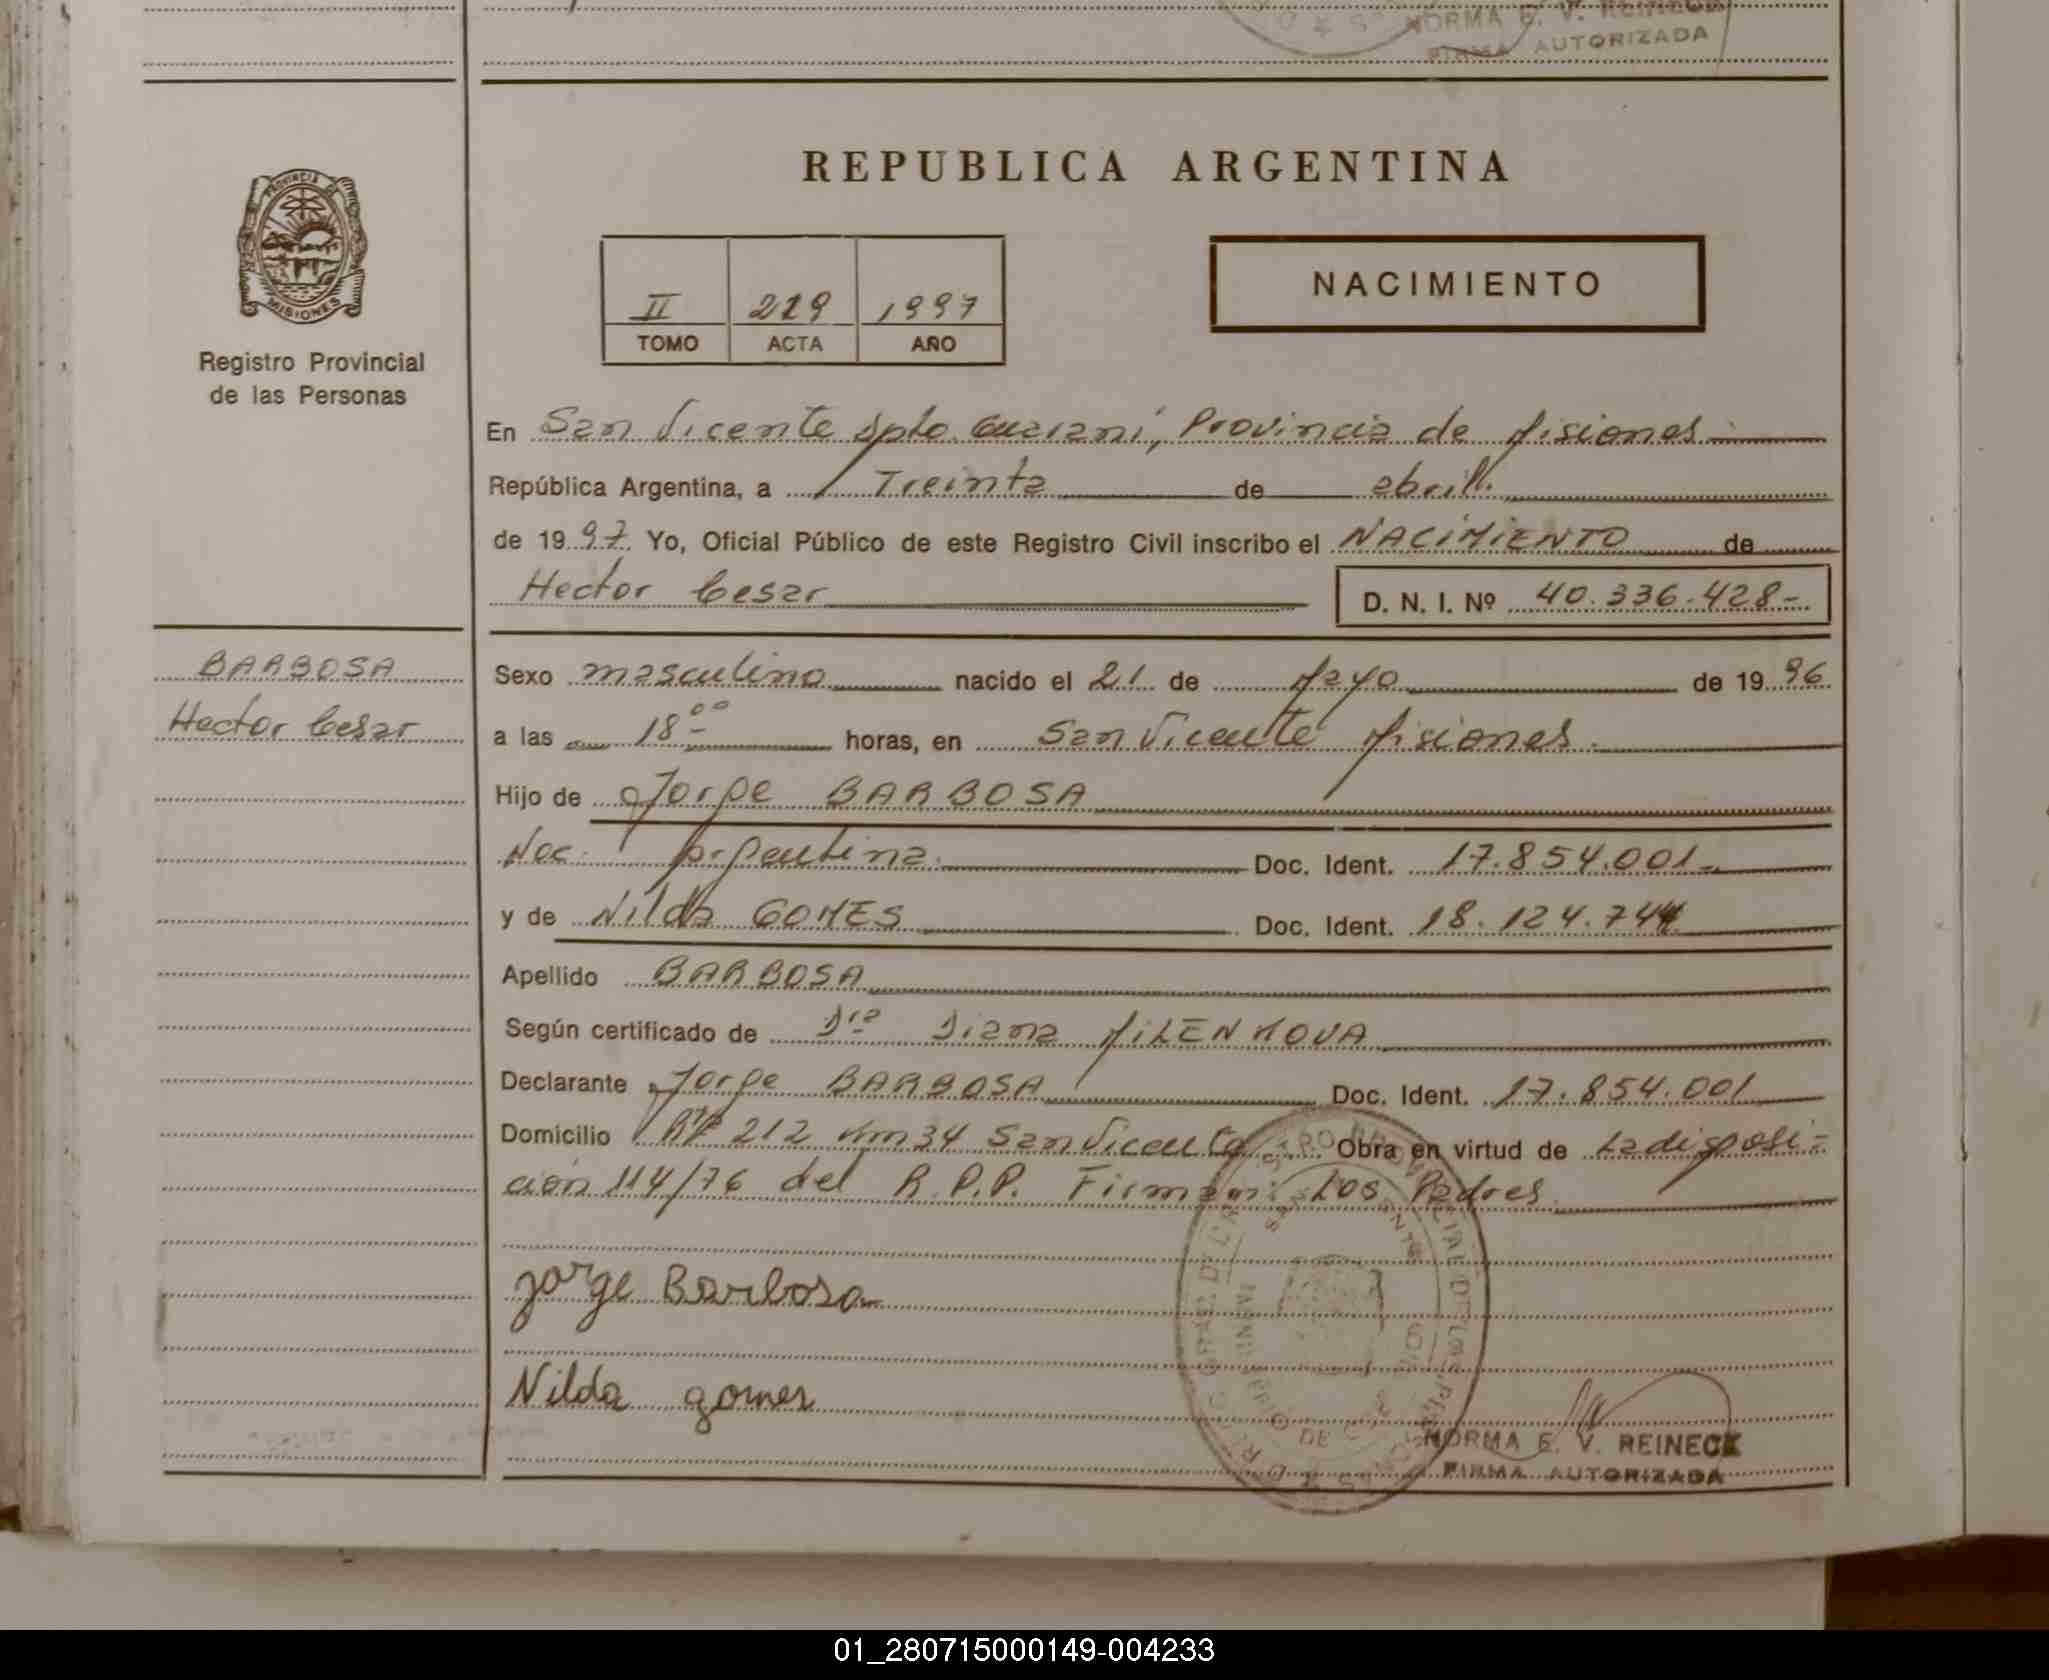 NORMA E. V. REINECK
FIRMA AUTORIZADA
REPUBLICA ARGENTINA
PROVINCIA DE
MISIONES
Registro Provincial
de las Personas
II 219 1997
TOMO ACTA AÑO
NACIMIENTO
En San Vicente Dpto. Guaraní, Provincia de Misiones
República Argentina, a Treinta de abril
de 1997 Yo, Oficial Público de este Registro Civil inscribo el NACIMIENTO de
Hector Cesar D. N. I. Nº 40.336.428-
BARBOSA
Hector Cesar
Sexo masculino nacido el 21 de Mayo de 1996
a las 18 00 horas, en San Vicente Misiones.
Hijo de Jorge BARBOSA
Nac. Argentina. Doc. Ident. 17.854.001-
y de Nilda GOMES Doc. Ident. 18.124.744
Apellido BARBOSA
Según certificado de Dra Diana MILENKOVA
Declarante Jorge BARBOSA Doc. Ident. 17.854.001
Domicilio 212 Km 34 San Vicente Obra en virtud de La disposi-
ción 114/76 del R.P.P. Firman: Los Padres
jorge Barbosa
Nilda gomes
NORMA E. V. REINECK
FIRMA AUTORIZADA
01_280715000149-004233